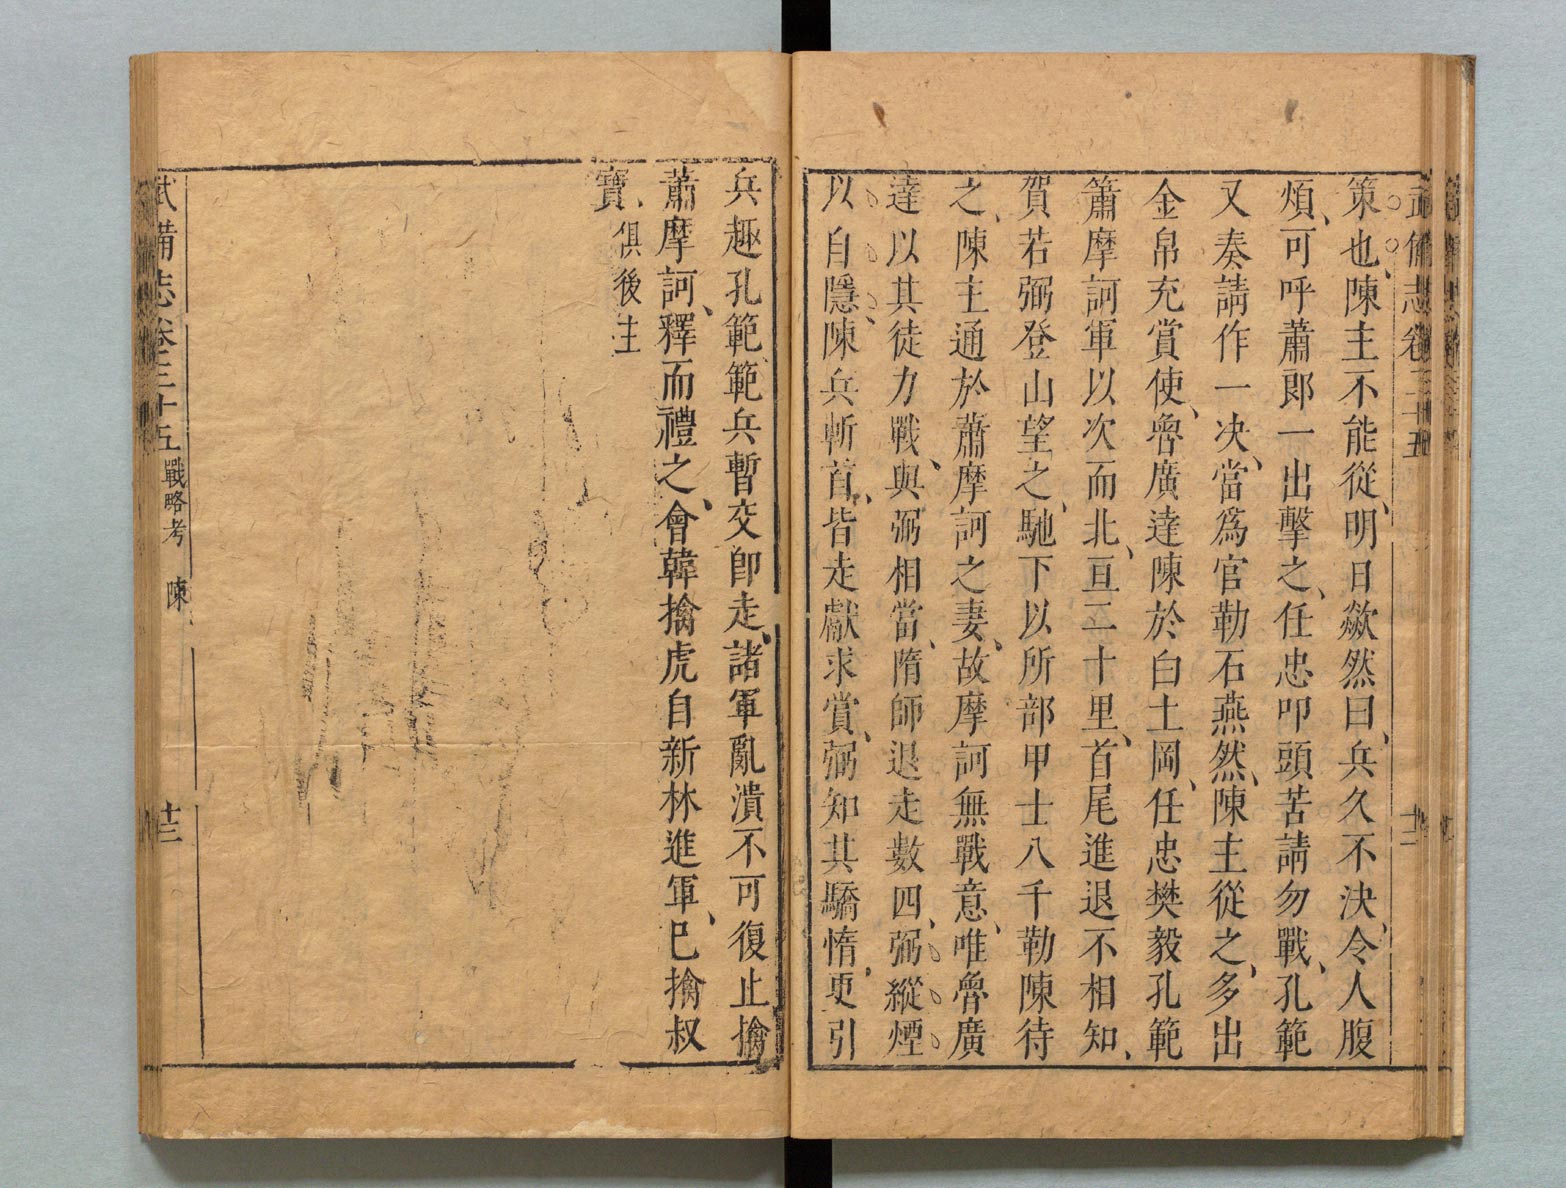 武備志卷三十五
十二
策也陳主不能從明日歘然曰兵久不決令人腹
煩可呼蕭郎一出擊之任忠叩頭苦請勿戰孔範
又奏請作一决當爲官勒石燕然陳主從之多出
金帛充賞使魯廣達陳於白土岡任忠樊毅孔範
簫摩訶軍以次而北亘二十里首尾進退不相知
賀若弼登山望之馳下以所部甲士八千勒陳待
之陳主通於蕭摩訶之妻故摩訶無戰意唯魯廣
達以其徒力戰與弼相當隋師退走數四弼縱煙
以自隱陳兵斬首皆走獻求賞弼知其驕惰更引
兵趣孔範範兵暫交卽走諸軍亂潰不可復止擒
蕭摩訶釋而禮之會韓擒虎自新林進軍巳擒叔
寶俱後主
武備志卷三十五 戰略考 陳 十三